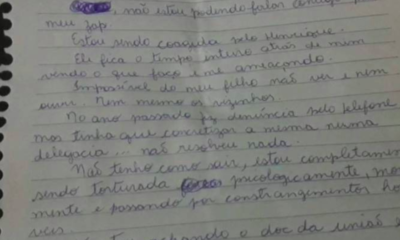 , não estou podendo falar contigo
meu zap.
Estou sendo coagida pelo Henrique.
Ele fica o tempo inteiro atrás de mim
vendo o que faço e me ameaçando.
Impossível do meu filho não ver e nem
ouvir. Nem mesmo os vizinhos.
No ano passado fiz denúncia pelo telefone
mas tinha que concretizar a mesma numa
delegacia... não resolveu nada.
Não tenho como sair, estou completamen
sendo torturada psicologicamente,
mente e passando por constrangimentos
o doc da união